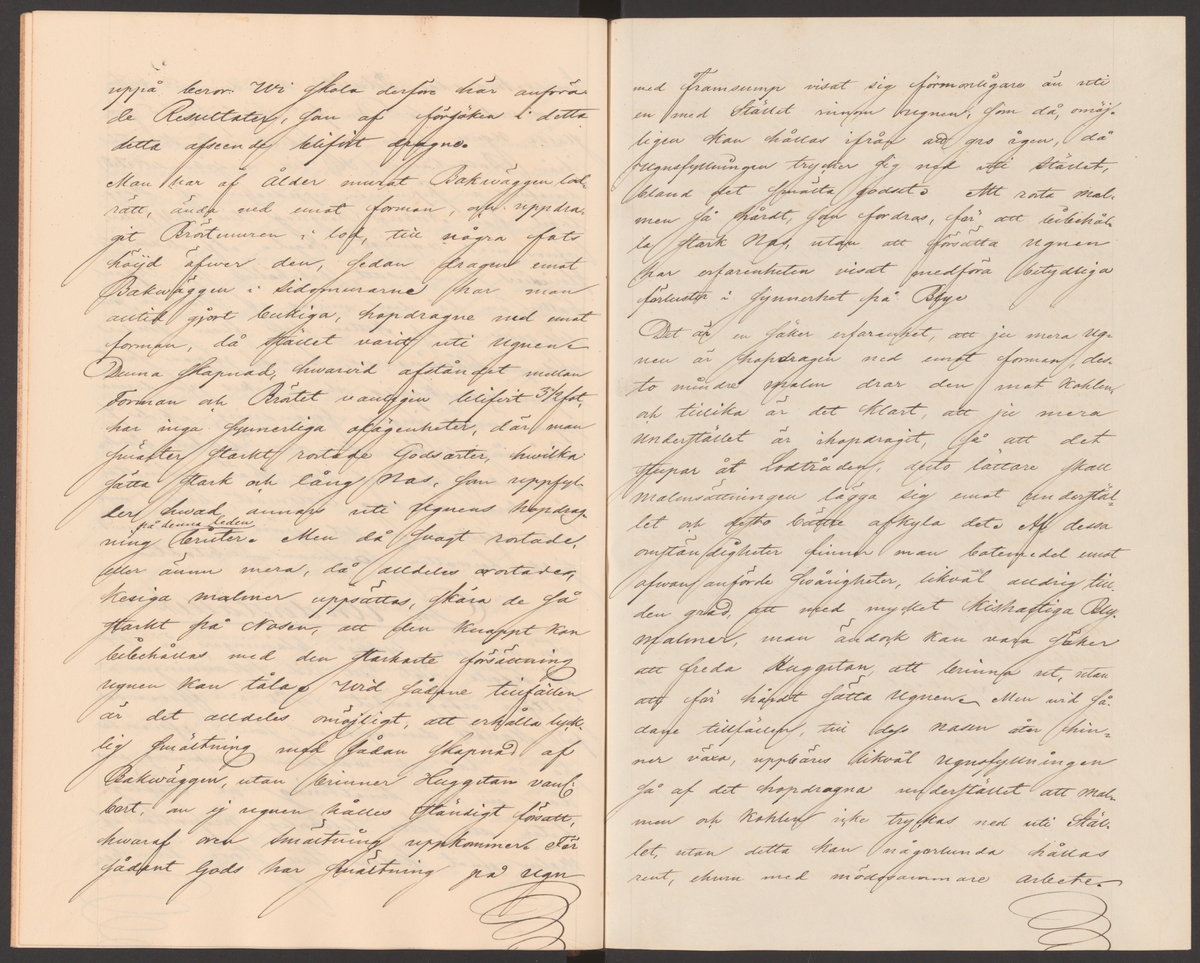 uppå beror. Wi skola derföre här anföra
de Resultater, som af försöken i detta
detta afseende blifvit dragne.
Man har af Ålder murat Bakwäggen lod-
rätt, ända ned emot forman, och uppdra-
git Bröstmuren i lod, till några fots
höijd öfwer den, sedan dragen emot
Bakwäggen i Sidomurarne har man
altid gjort bukiga, hopdragne ned emot
forman, då Stället varit uti Ugnen.
Denna Skapnad, hwarvid afståndet mellan
Forman och Bröstet vanligen blifvit 3 1/2 fot,
har inga synnerliga olägenheter, där man
smälter starkt rostade Godsarter, hwilka
sätta stark och lång Nas, som uppfyl-
ler hwad annars uti Ugnens hopdrag-
på denna leden
ning brister. Men då svagt rostade,
eller ännu mera, då alldeles orostades,
kesiga malmer uppsättas, skära de så
starkt på Nosen, att den knappt kan
bibehållas med den starkaste försättning
ugnen kan tåla. Wid sådane tillfällen
är det alldeles omöjligt, att erhålla lyck-
lig smältning med sådan skapnad af
Bakwäggen, utan brinner Huggitan van-
bart, om ej ugnen hålles ständigt försatt,
hwaraf oren Smältning uppkommer. För
sådant Gods har smältning på ugn
med Framsump visat sig förmonligare än uti
en med Stället innom ugnen, som då, omöj-
ligen kan hållas ifrån att gro ägen, då
Ugnsfyllningen trycker sig ned uti Stället,
bland det smälta godset. Att rosta mal-
men så hårdt, som fordras, för att bibehål-
la stark Nas, utan att försätta ugnen
har erfarenheten visat medföra betydliga
förluster i synnerhet på Blye
Det är en säker erfarenhet, att ju mera ug-
nen är hopdragen ned emot forman, des-
to mindre malm drar den mot kohlen,
och tillika är det klart, att ju mera
Understället är ihopdragit, så att det
stupar åt Lodtråden, desto lättare skall
malmsättningen lägga sig emot understäl-
let och desto bättre afkyla det. Af dessa
omständigheter finner man botemedel emot
ofwananförde svårigheter, likväl aldrig till
den grad, att med mycket kishaftiga Bly-
malmer, man ändock kan vara säker
att freda Huggitan, att brinna ut, utan
att för hårdt sätta Ugnen. Men vid så-
dane tillfällen, till dess nasen åter hin-
ner växa, uppbäres likväl Ugnsfyllningen
så af det hopdragna understället att mal-
men och kohlen icke tryckas ned uti Stäl-
let, utan detta kan någorlunda hållas
rent, ehuru med mödosammare arbete.